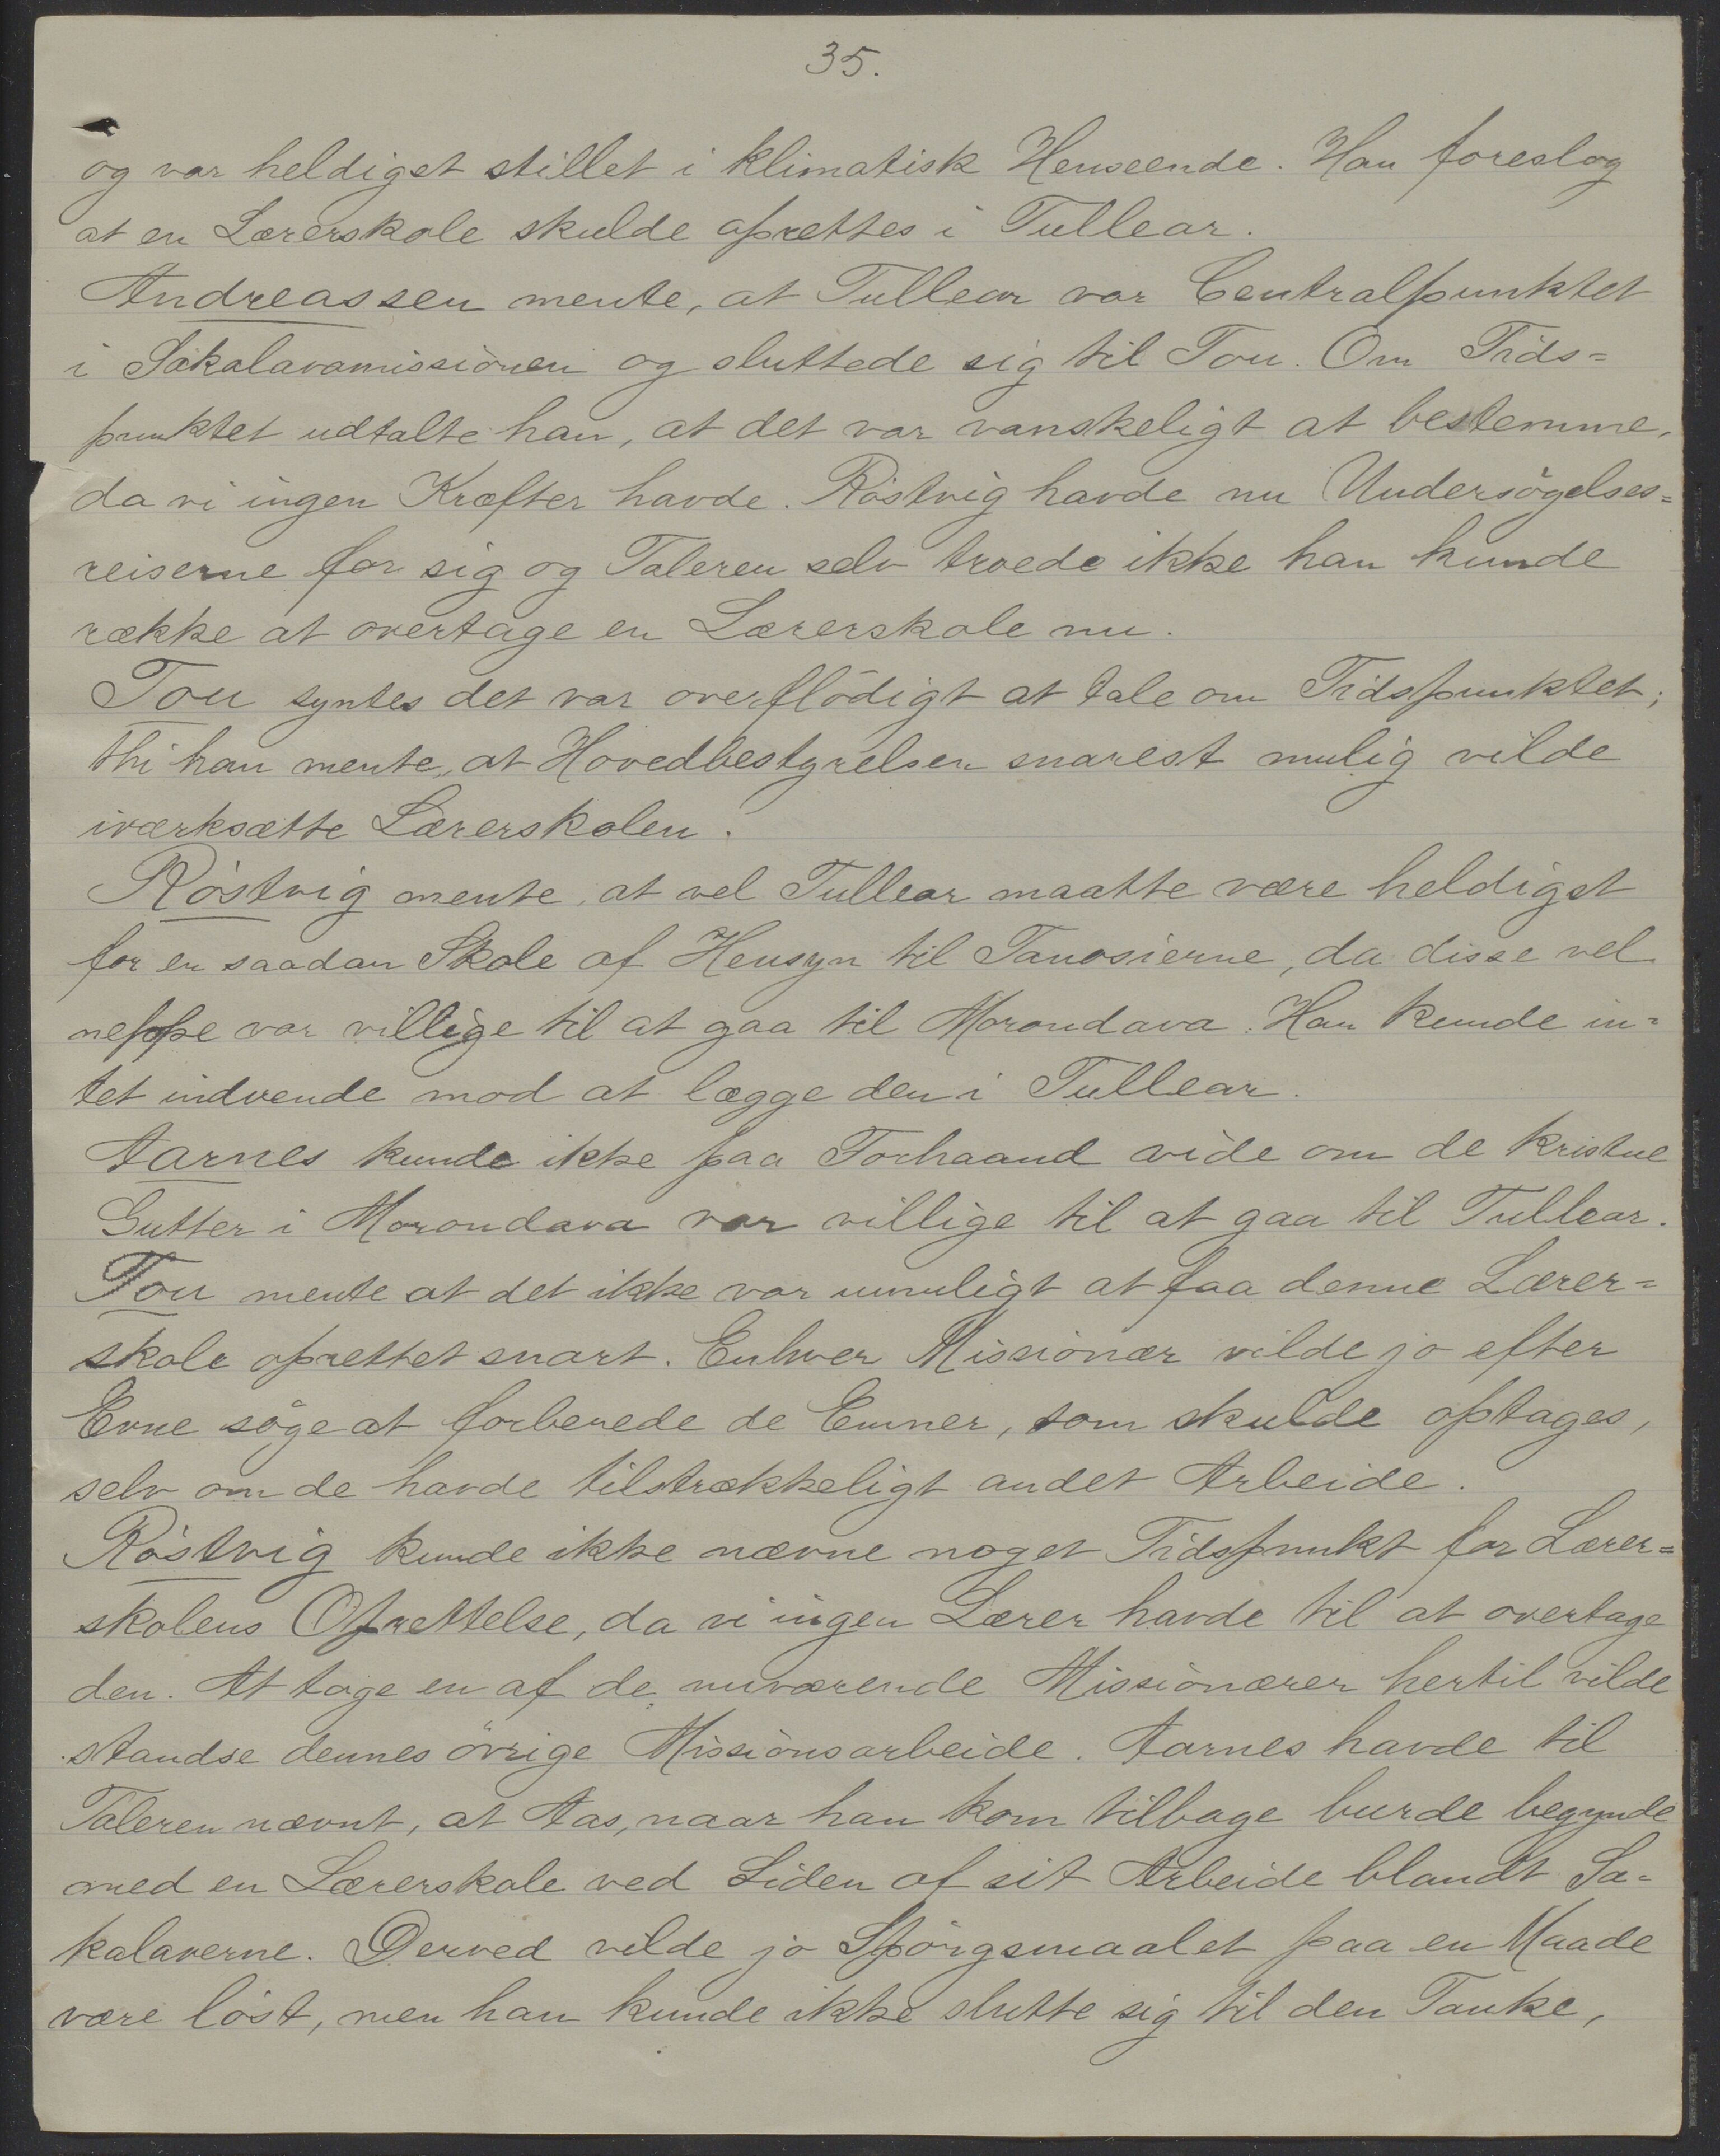 35.
og var heldigst stillet i klimatisk Henseende. Han foreslog
at en Lærerskole skulde oprettes i Tullear.
Andreassen mente, at Tullear var Centralpunktet
i Sakalavamissionen og sluttede sig til Tou. Om Tids=
punktet udtalte han, at det var vanskeligt at bestemme,
da vi ingen Kræfter havde. Röstvig havde nu Undersögelses=
reiserne for sig og Taleren selv troede ikke han kunde
række at overtage en Lærerskole nu.
Tou syntes det var overflödigt at tale om Tidspunktet;
thi han mente, at Hovedbestyrelsen snarest mulig vilde
iværksætte Lærerskolen.
Röstvig mente, at vel Tullear maatte være heldigst
for en saadan Skole af Hensyn til Tanosierne, da disse vel
neppe var villige til at gaa til Morondava. Han kunde in=
tet indvende mod at lægge den i Tullear.
Aarnes kunde ikke paa Forhaand vide om de kristne
Gutter i Morondava var villige til at gaa til Tullear.
Tou mente at det ikke var umuligt at faa denne Lærer=
skole oprettet snart. Enhver Missionær vilde jo efter
Evne söge at forberede de Emner, som skulde optages,
selv om de havde tilstrækkeligt andet Arbeide.
Röstvig kunde ikke nævne noget Tidspunkt for Lærer=
skolens Oprettelse, da vi ingen Lærer havde til at overtage
den. At tage en af de nuværende Missionærer hertil vilde
standse dennes övrige Missionsarbeide. Aarnes havde til
Taleren nævnt, at Aas, naar han kom tilbage burde begynde
med en Lærerskole ved Siden af sit Arbeide blandt Sa=
kalaverne. Derved vilde jo Spörgsmaalet paa en Maade
være löst, men han kunde ikke slutte sig til den Tanke,